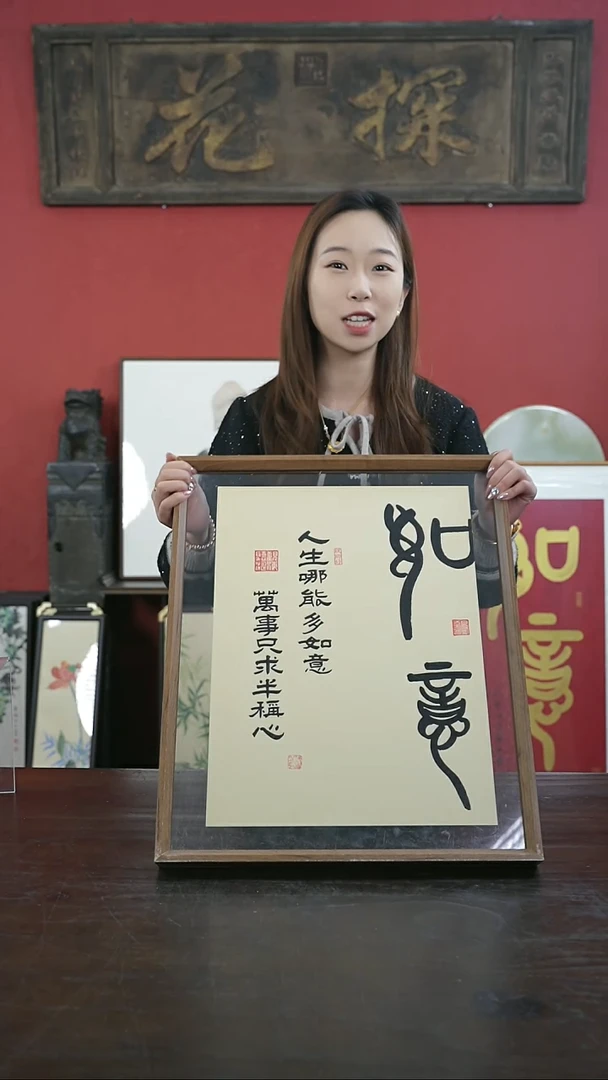 探花
如意
人生哪能多如意
萬事只求半稱心
如意